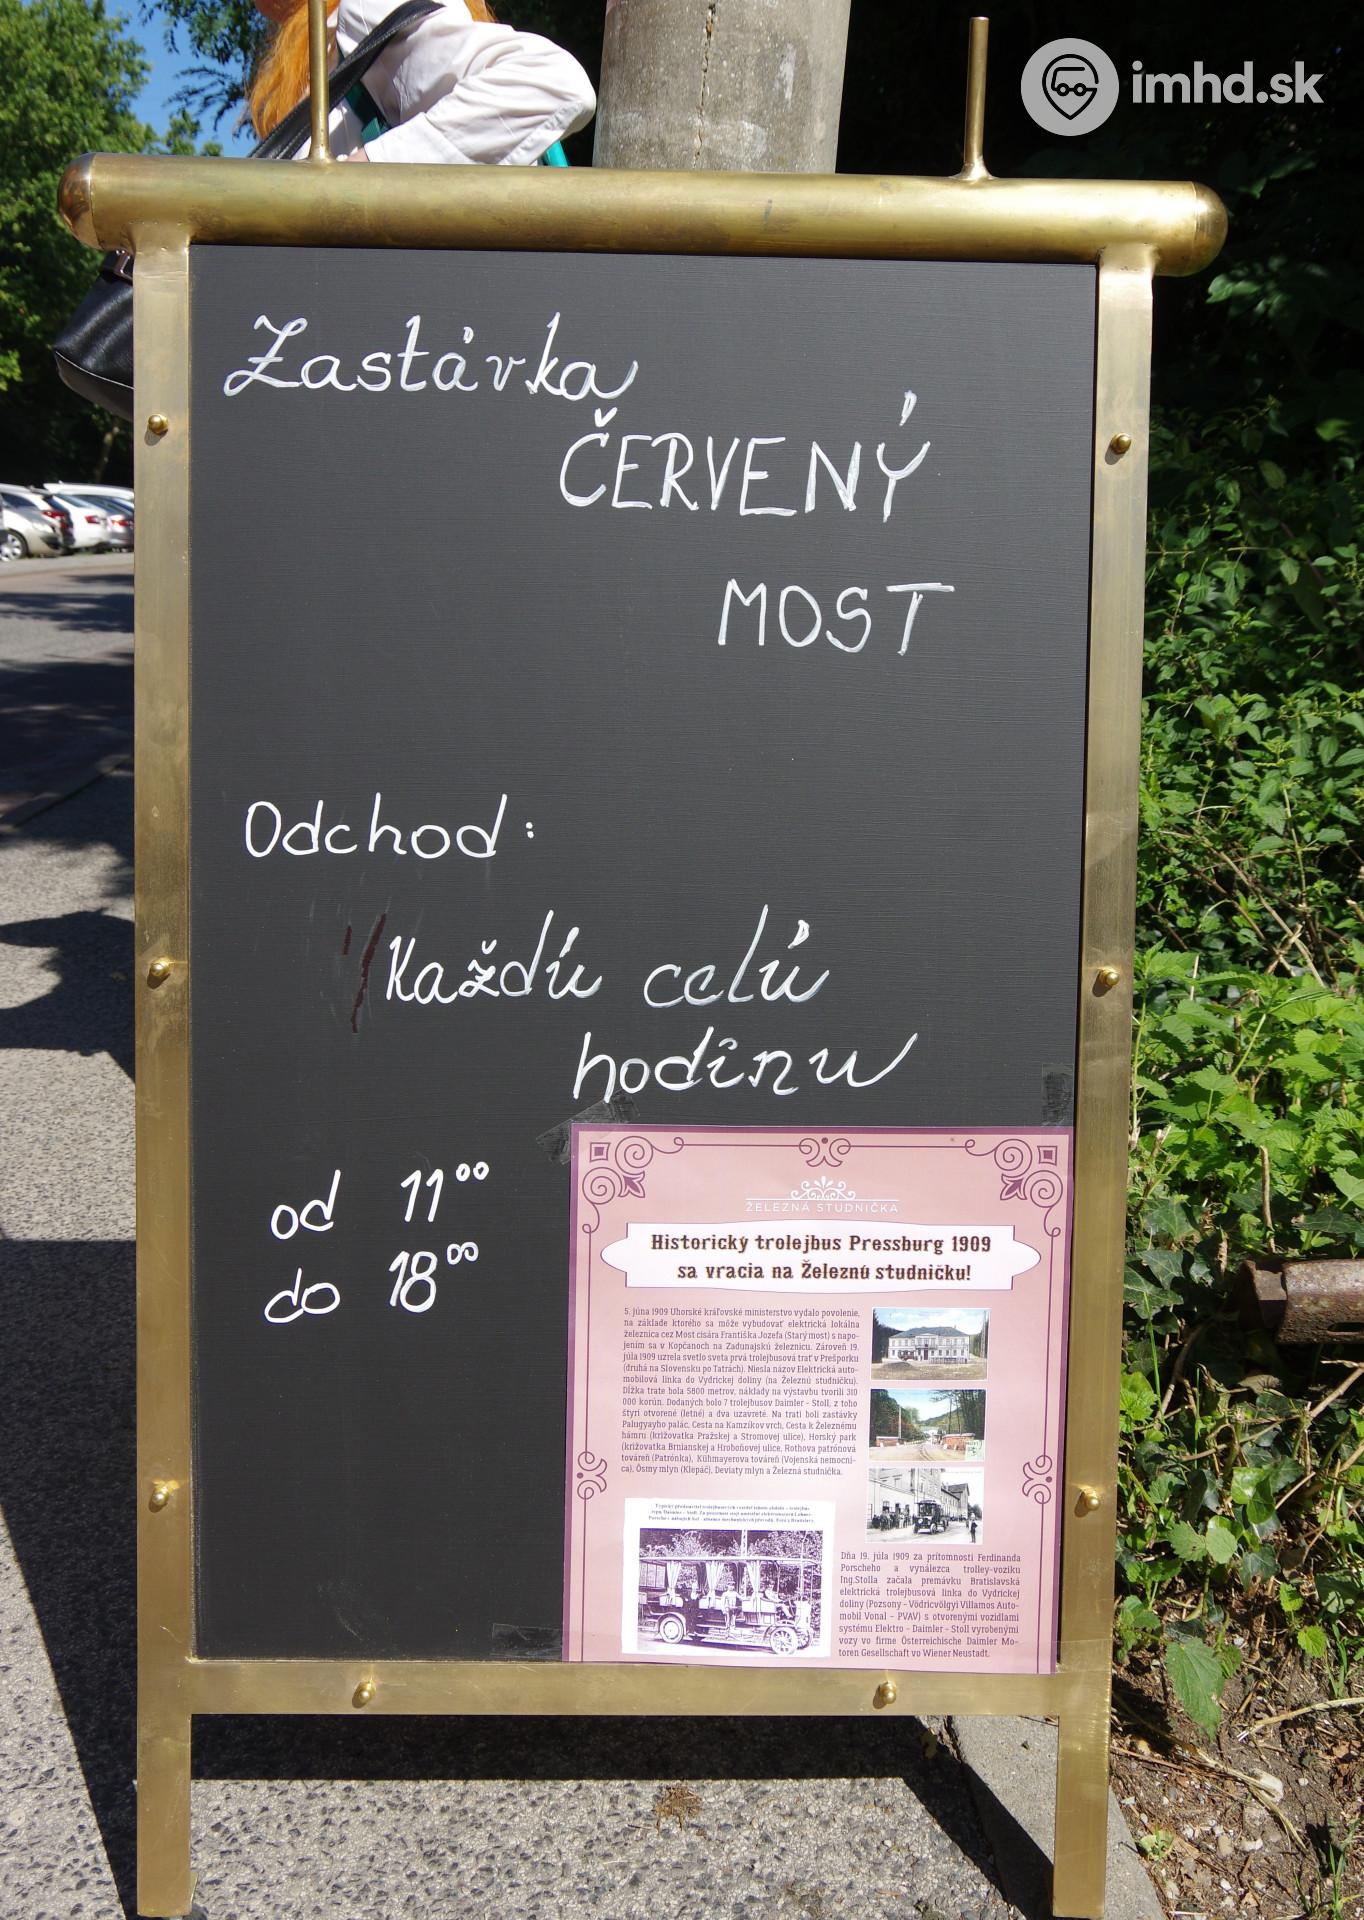 imhd.sk
Zastávka
ČERVENÝ
MOST
Odchod:
Každú celú
hodinu
od 11⁰⁰
do 18⁰⁰
ŽELEZNÁ STUDNIČKA
Historický trolejbus Pressburg 1909
sa vracia na Železnú studničku!
5. júna 1909 Uhorské kráľovské ministerstvo vydalo povolenie,
na základe ktorého sa môže vybudovať elektrická lokálna
železnica cez Most cisára Františka Jozefa (Starý most) s napo-
jením sa v Kopčanoch na Zadunajskú železnicu. Zároveň 19.
júla 1909 uzrela svetlo sveta prvá trolejbusová trať v Prešporku
(druhá na Slovensku po Tatrách). Niesla názov Elektrická auto-
mobilová linka do Vydrickej doliny (na Železnú studničku).
Dĺžka trate bola 5800 metrov, náklady na výstavbu tvorili 310
000 korún. Dodaných bolo 7 trolejbusov Daimler - Stoll, z toho
štyri otvorené (letné) a dva uzavreté. Na trati boli zastávky
Palugyayho palác, Cesta na Kamzíkov vrch, Cesta k Železnému
hámru (križovatka Pražskej a Stromovej ulice), Horský park
(križovatka Brnianskej a Hroboňovej ulice, Rothova patrónová
továreň (Patrónka), Kühmayerova továreň (Vojenská nemocni-
ca), Ôsmy mlyn (Klepáč), Deviaty mlyn a Železná studnička.
Typický predstaviteľ trolejbusových vozidiel tohoto obdobia - trolejbus
typu Daimler - Stoll.
Dňa 19. júla 1909 za prítomnosti Ferdinanda
Porscheho a vynálezca trolley-vozíku
Ing.Stolla začala premávku Bratislavská
elektrická trolejbusová linka do Vydrickej
doliny (Pozsony - Vödricvölgyi Villamos Auto-
mobil Vonal - PVAV) s otvorenými vozidlami
systému Elektro - Daimler - Stoll vyrobenými
vozy vo firme Österreichische Daimler Mo-
toren Gesellschaft vo Wiener Neustadt.